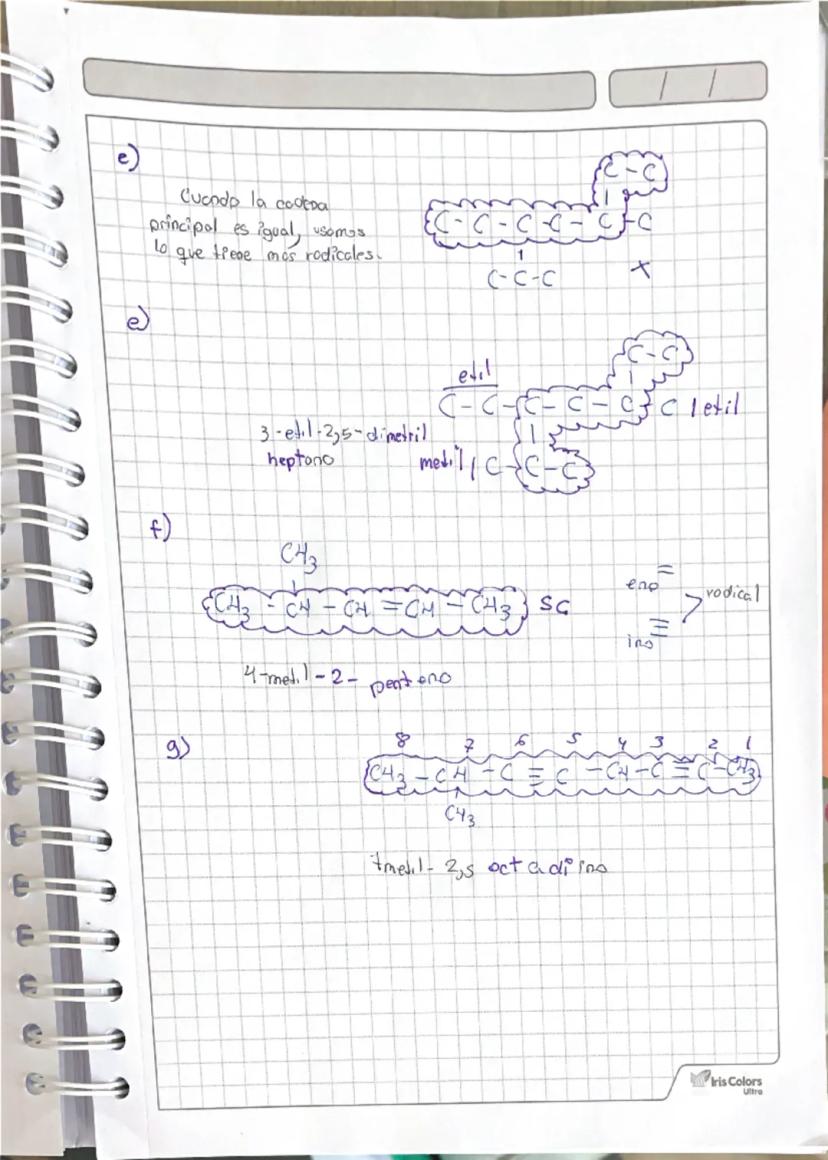 / /
e)
Cuando la cadena
principal es igual, usamos
lo que tiene mas radicales.
C - C
C - C - C - C - C - C
C - C - C
x
e)
C - C
etil
C - C - C - C - C C | etil
3-etil-2,5-dimetril
heptano
metil | C - C - C
f)
CH3
CH3 - CH - CH = CH - CH3 SC
eno =
ino ≡
> radical
4-metil-2- penteno
g)
8 7 6 5 4 3 2 1
CH3 - CH - C ≡ C - CH - C ≡ C - CH3
CH3
7metil- 2,5 octadiino
Iris Colors
Ultra